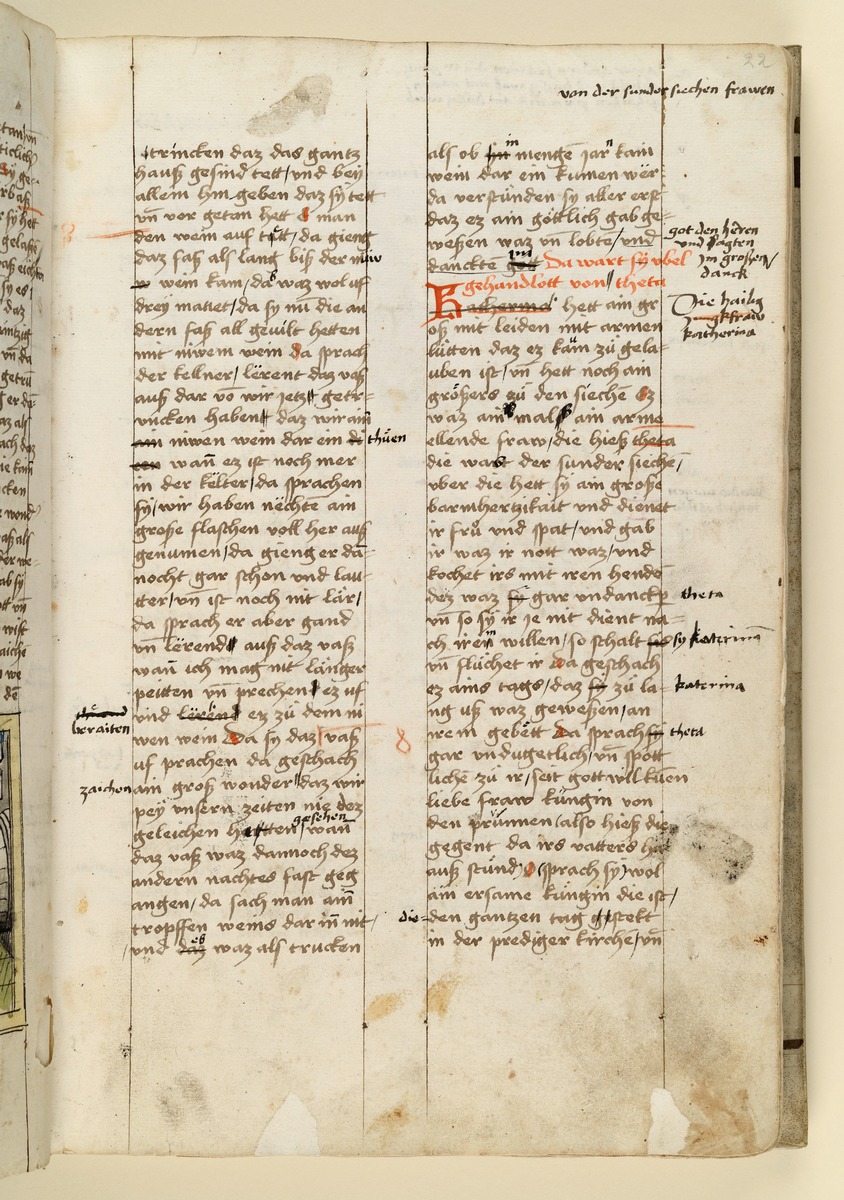 22
van der sunder siechen frawen
trincken daz das gantz
hauß gesind tett / und bey
allem hin geben daz sy tett
vn̄ vor getan hett man
den wein auf tett, da gieng
daz faß als lang biß der niw
wein kam, da waz wol uf
drey manet, da sy nū die an
dern faß all gevilt hetten
mit niwem wein Da sprach
der kellner, lërent daz vaß
auß dar vō wir jetz getr-
uncken haben daz wir ain
niwen wein dar ein thüen
wan̄ ez ist noch mer
in der kelter, da sprachen
sy, wir haben nëchten ain
große flaschen voll her auß
genumen, da gieng er dā-
nocht gar schon und lau-
tter, vn̄ ist noch nit lär,
da sprach er aber gand
vn̄ lërend auß daz vaß
wan̄ ich mag nit länger
peitten vn̄ prechen ez uf
und beraiten ez zü dem ni
wen wein Da sy daz vaß
uf prachen da geschach
zaichen ain groß wonder daz wir
pey unsern zeiten nie dez
geleichen hetten gesehen, wan̄
daz vaß waz dannoch dez
andern nachtes fast geg
angen, da sach man ain̄
tropffen weins dar in̄ nit,
und eß waz als trucken
als ob in menge jar kain
wein dar ein kumen wër
da verstünden sy aller erst
daz ez ain göttlich gab ge-
weßen waz vn̄ lobte, und
danckten
got den heren und sagten im großen danck
Da wart sy vbel
gehandlott von theta
Die hailig junckfraw katherina
Katherina hett ain gr
oß mit leiden mit armen
lütten daz ez kam zü gela-
uben ist, vn̄ hett noch ain
größers zü den siechē Ez
waz ain mal ain arme
ellende fraw, die hieß theta
die wart der sunder siechē,
vber die hett sy ain große
barmhertzikait und dienet
ir frü und spat, und gab
ir waz ir nott waz, und
kochet irs mit iren hendē
dez waz theta gar undanckper
vn̄ so sy ir je nit dient na-
ch irem willen, so schalt sy katerinā
vn̄ flüchet ir Da geschach
ez ains tags, daz katerina zü la-
ng uß waz geweßen, an
irem gebett Da sprach theta
gar undugetlich, vn̄ spott
lichē zü ir, seit gott wilkuēn
liebe fraw küngin von
den prünnen (also hieß die
gegent da irs vatters hus
auß stünd) O (sprach sy) wol
ain ersame küngin die ist,
die den gantzen tag stekt
in der prediger kirchē, vn̄